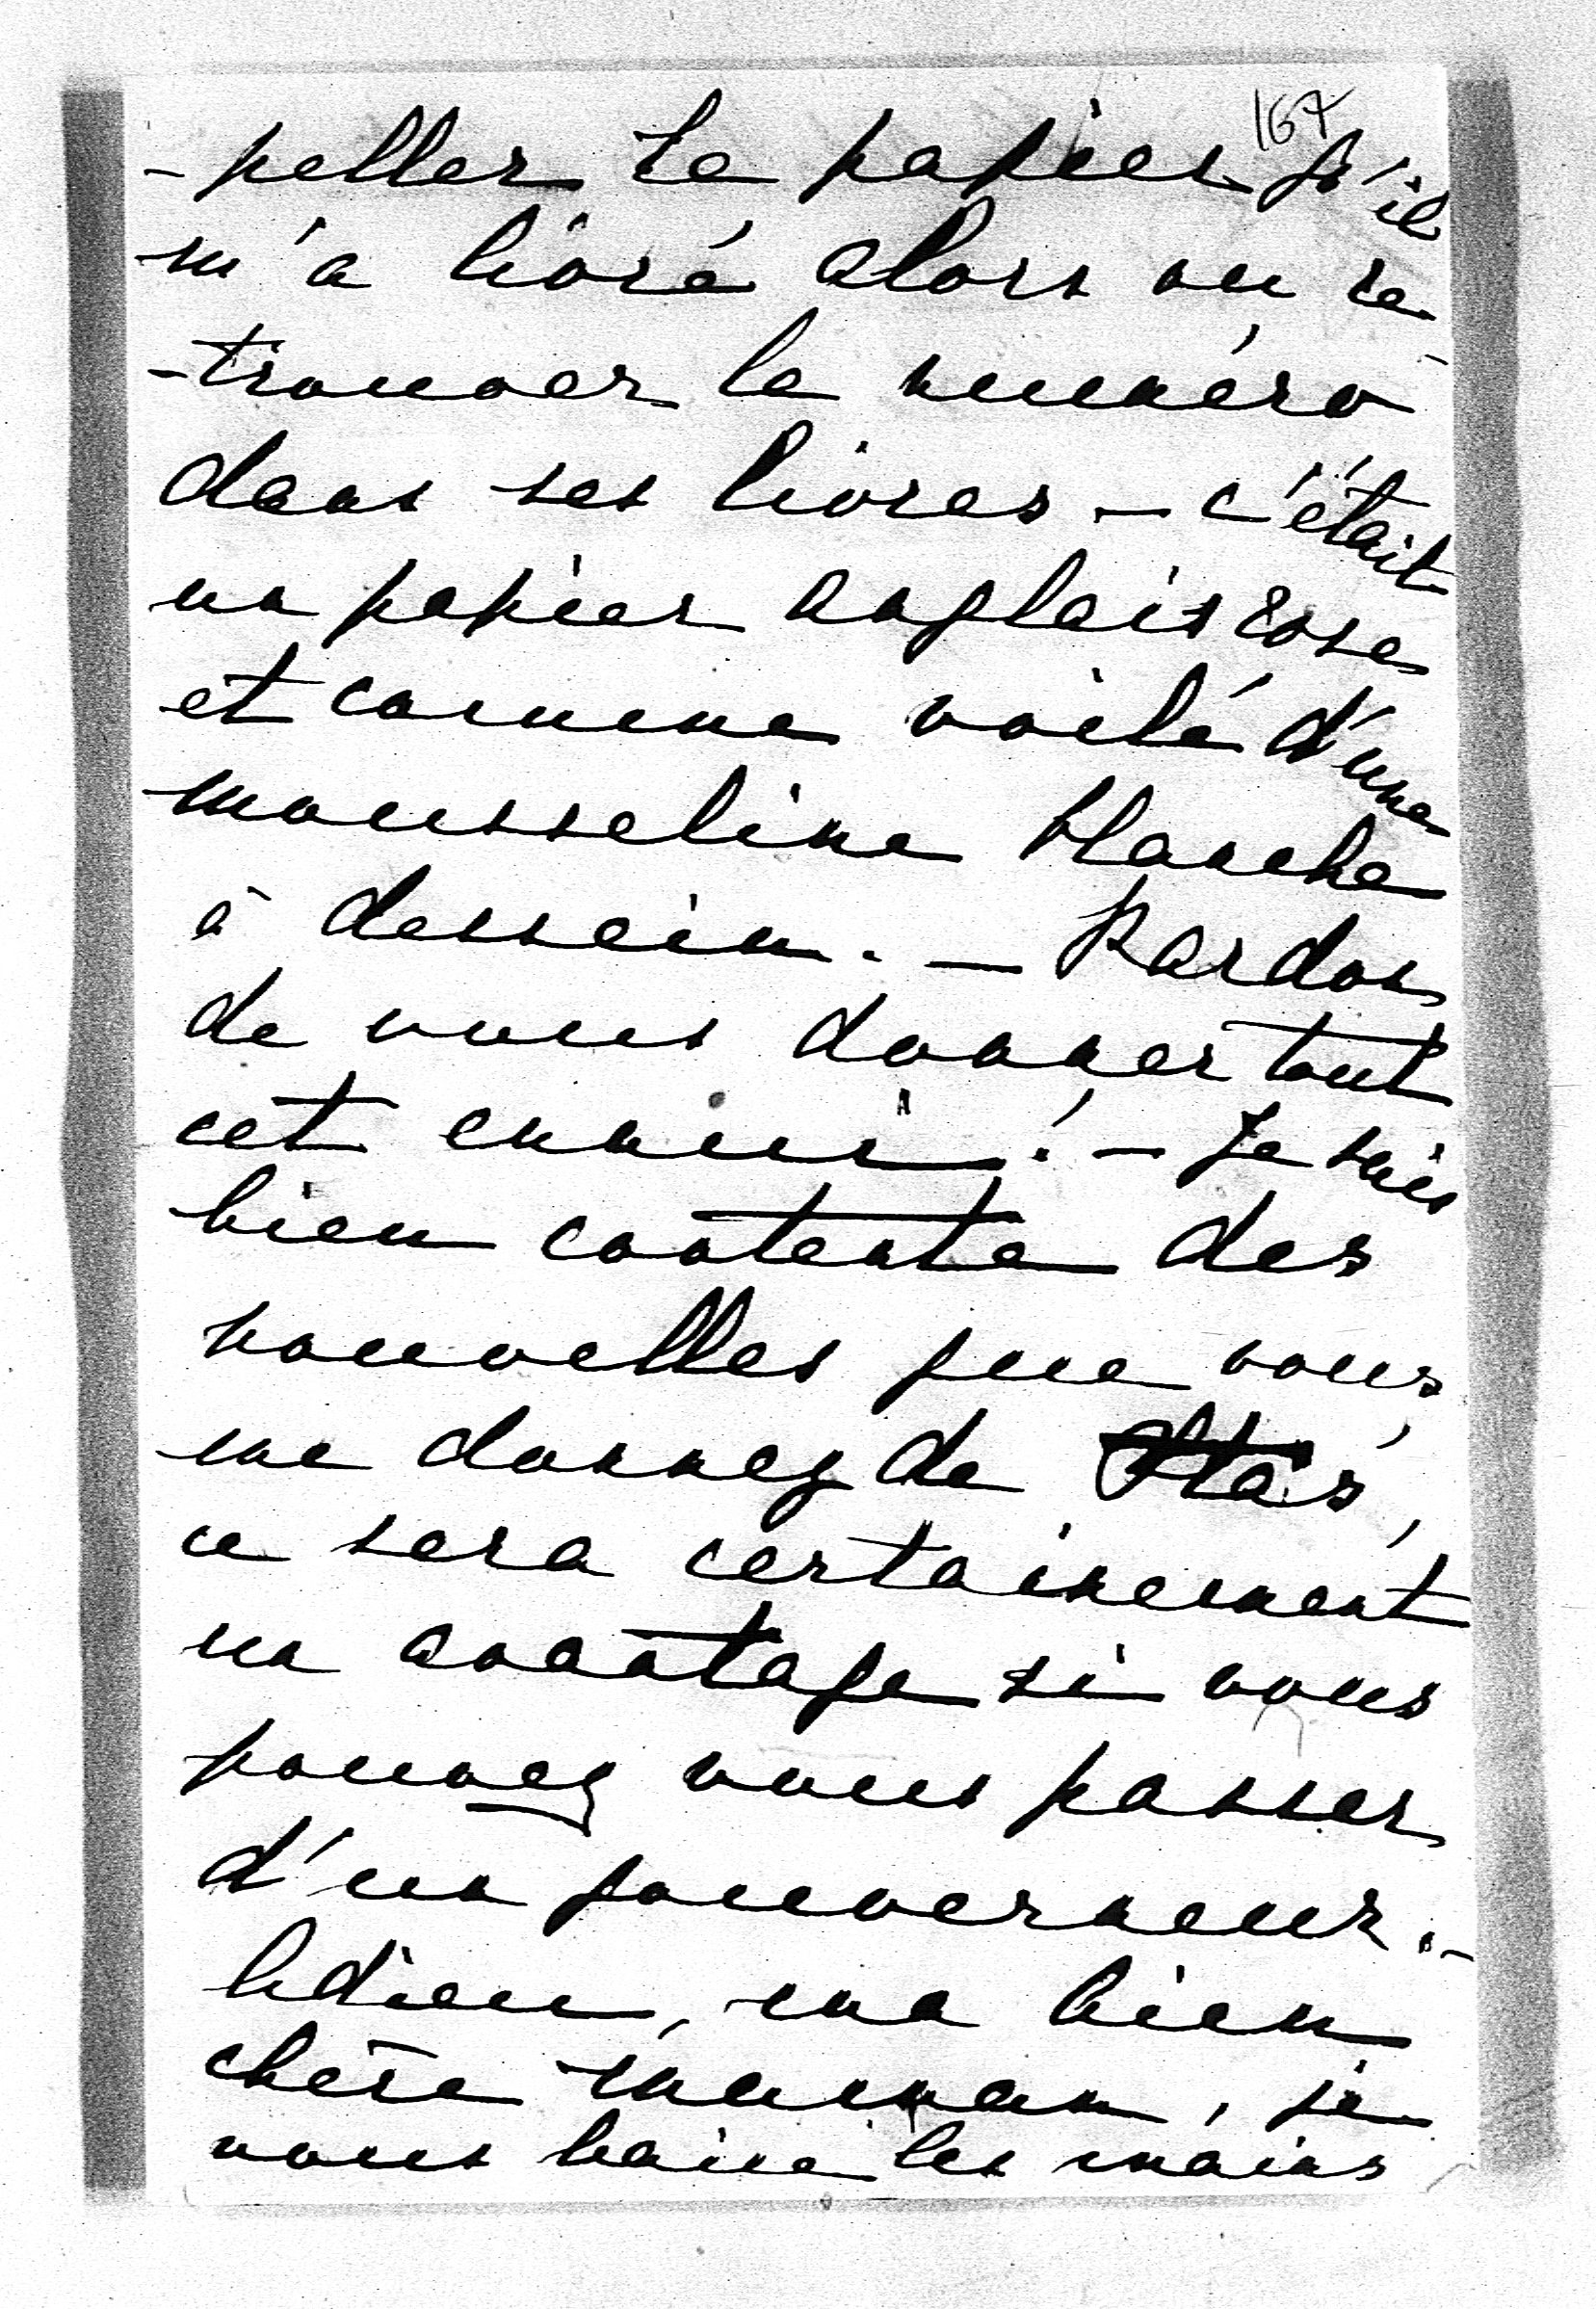 167
-peller le papier qu'il
m'a livré alors ou re-
-trouver le numéro
dans ses livres - c'était
un papier anglais rose
et comme voilé d'une
mousseline blanche
à dessein. - Pardon
de vous donner tout
cet ennui! - Je suis
bien contente des
nouvelles que vous
me donnez de Stas,
ce sera certainement
un avantage si vous
pouvez vous passer
d'un gouverneur. -
Adieu, ma bien
chère maman, je
vous baise les mains